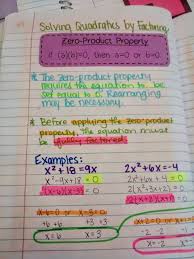 Solving Quadratics by Factoring
Zero-Product Property
if (a)(b)=0, then a=0 or b=0.
* The zero-product property
requires the equation to be
set equal to 0. Rearranging
may be necessary.
* Before applying the zero product
property, the equation must
be fully factored.
Examples:
x²+18=9x
x²-9x+18=0
(x-6)(x-3)=0
x-6=0 or x-3=0
+6 +6 +3 +3
x=6 x=3
2x²+6x=-4
2x²+6x+4=0
2(x²+3x+2)=0
2(x+2)(x+1)=0
x+2=0 or
-2 -2
x=-2